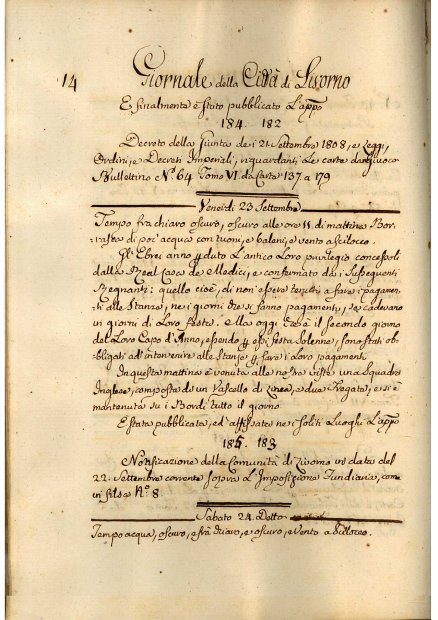 14
Giornale della Città di Livorno
E finalmente è stato pubblicato L'app.o
184. 182
Decreto della Giunta de i 21. Settembre 1808, e Leggi,
Ordini, e Decreti Imperiali, riguardanti Le carte da giuoco
Bullettino N.o 64 Tomo VI. da Carta 137 a 179
Venerdì 23 Settembre
Tempo frà chiaro oscuro, oscuro alle ore 11 di mattina Bor-
rasca di poc'acqua con tuoni, e baleni, e vento a Sciloco.
Gli Ebrei anno perduto L'antico Loro privilegio concessoli
dalla Real Casa de Medici, e confermato da i susseguenti
Regnanti: quello cioè, di non essere tenuti a fare i pagamen-
ti alle Stanze, ne i giorni che si fanno pagamenti, se cadevano
in giorni di Loro Feste. e La oggi che è il secondo giorno
del Loro Capo d'Anno, essendo per essi festa solenne, sono stati ob-
bligati ad intervenire alle Stanze per fare i Loro pagamenti
In questa mattina è venuta alle nostre viste una Squadra
Inglese, composta di un Vascello di Linea, e due Fregate, e si è
mantenuta su i Bordi tutto il giorno
E stata pubblicata, ed affissata ne i soliti Luoghi L'app.a
185. 183
Notificazione della Comunità di Livorno in data del
22. Settembre corrente sopra L'Imposizione Fundiaria, come
in filza N.o 8
Sabato 24. Detto
Tempo acqua, oscuro, e frà chiaro, e oscuro, e Vento a Sciloco.